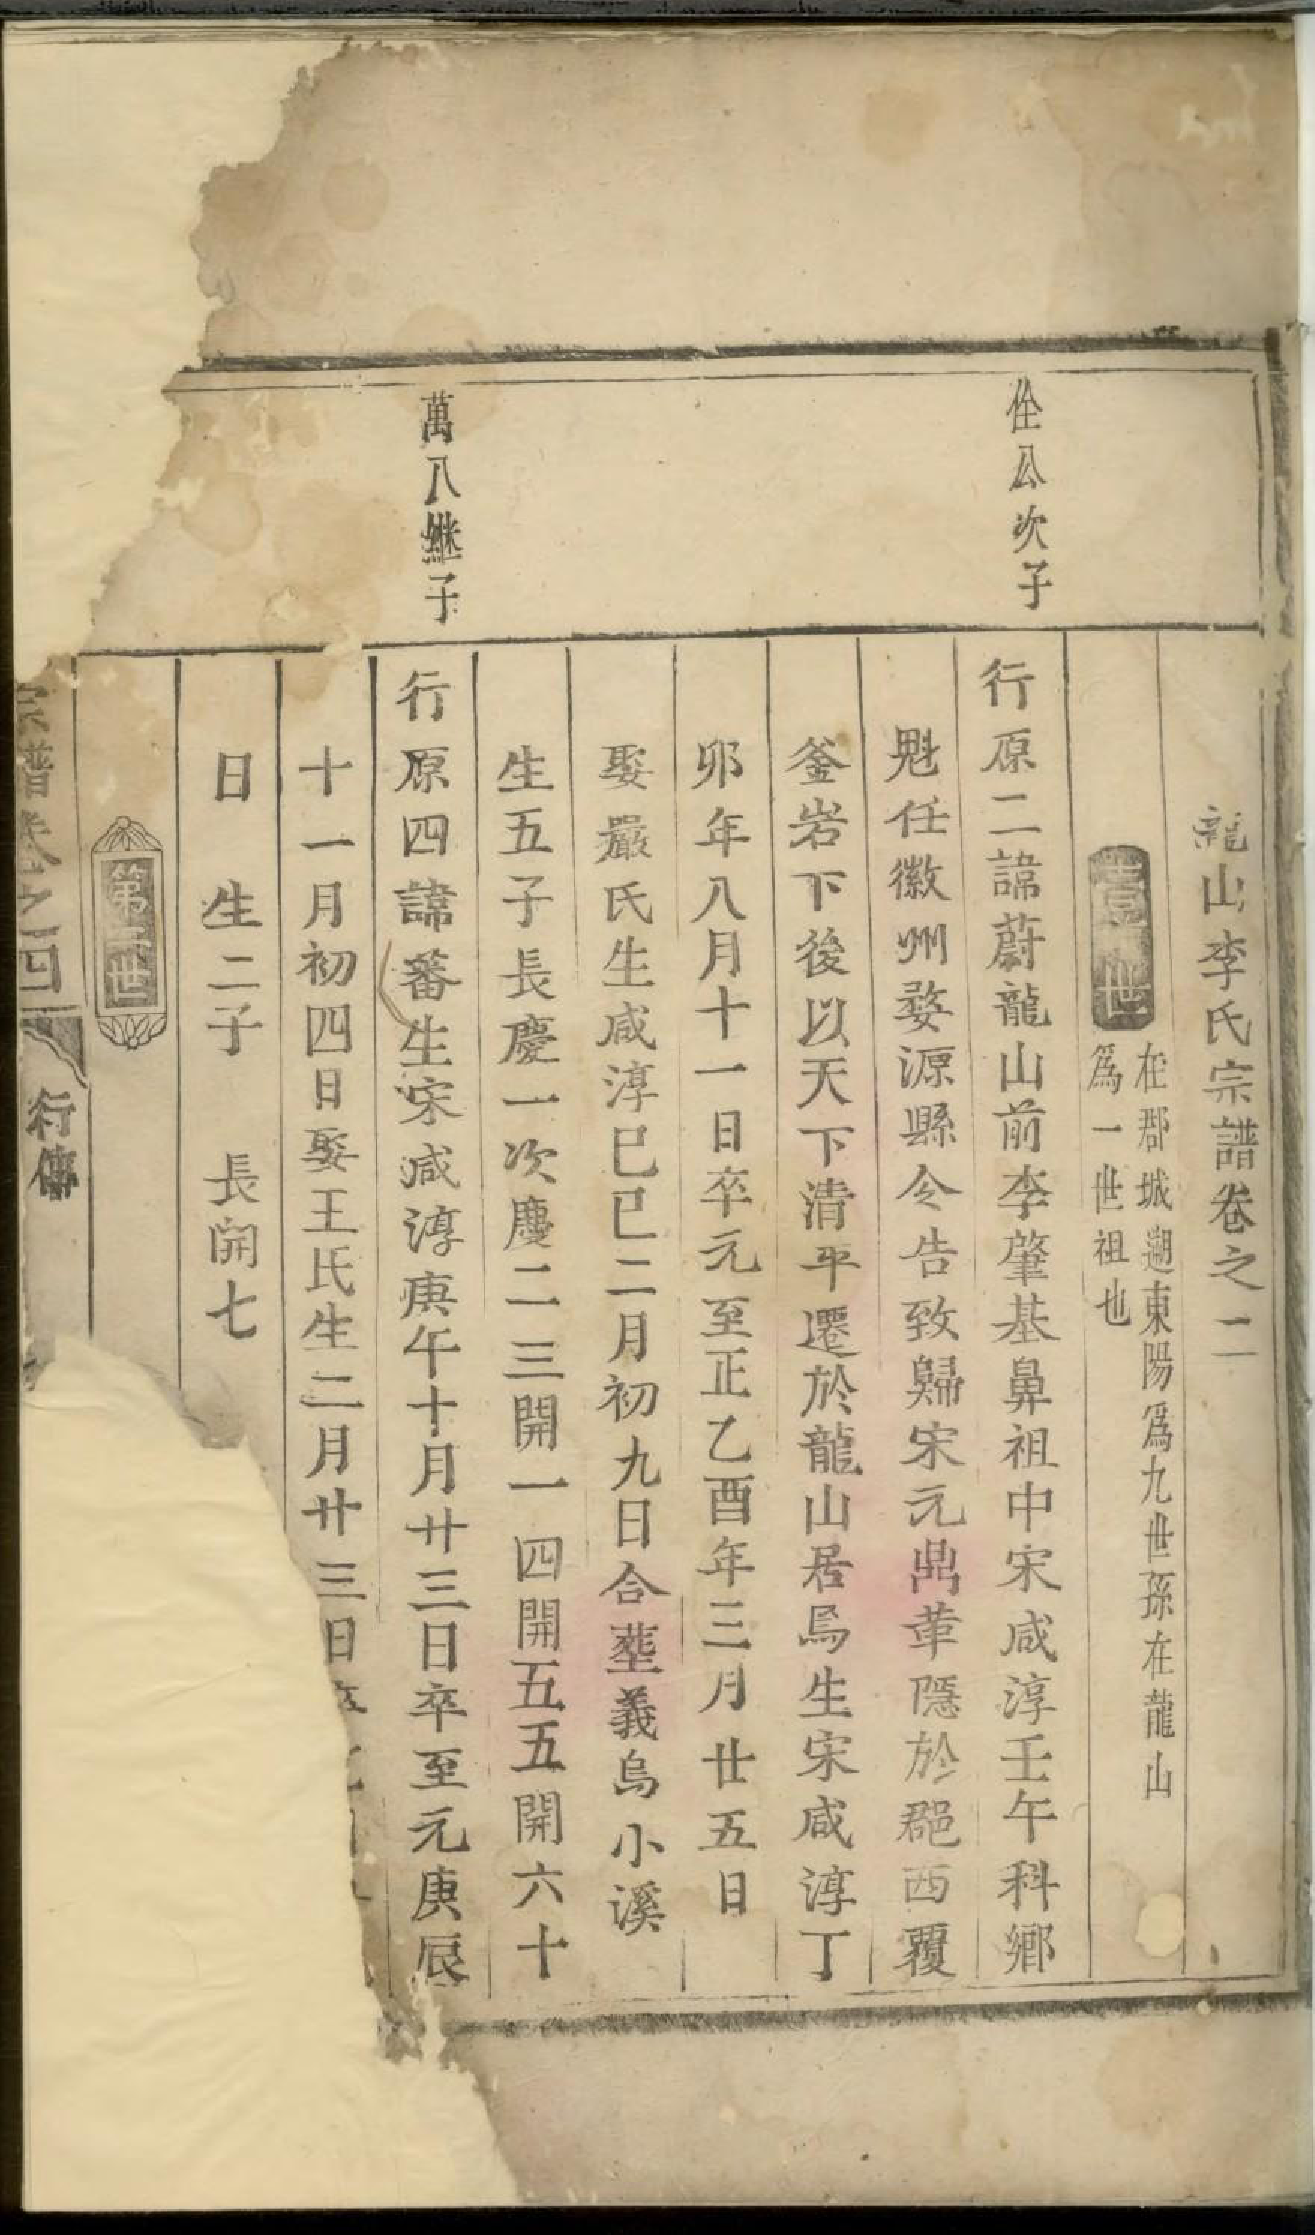 龍山李氏宗譜卷之二
壹世
在郡城遡東陽爲九世孫在龍山
爲一世祖也
佺公次子
行原二諱蔚龍山前李肇基鼻祖中宋咸淳壬午科鄉
魁任徽州婺源縣令告致歸宋元鼎革隱於郡西覆
釜岩下後以天下清平遷於龍山居焉生宋咸淳丁
卯年八月十一日卒元至正乙酉年三月廿五日
娶嚴氏生咸淳巳巳二月初九日合塟義烏小溪
生五子長慶一次慶二三開一四開五五開六十
萬八繼子
行原四諱蕃生宋咸淳庚午十月廿三日卒至元庚辰
十一月初四日娶王氏生二月廿三日卒
日 生二子 長開七
第二世
宗譜卷之四 行傳